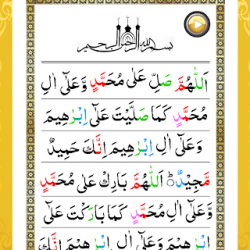 بسم الله الرحمن الرحيم
اَللّٰهُمَّ صَلِّ عَلٰى مُحَمَّدٍ وَّعَلٰٓى اٰلِ
مُحَمَّدٍ كَمَا صَلَّيْتَ عَلٰٓى اِبْرٰهِيْمَ
وَعَلٰٓى اٰلِ اِبْرٰهِيْمَ اِنَّكَ حَمِيْدٌ
مَّجِيْدٌ ۞ اَللّٰهُمَّ بَارِكْ عَلٰى مُحَمَّدٍ
وَّعَلٰٓى اٰلِ مُحَمَّدٍ كَمَا بَارَكْتَ عَلٰٓى
اِبْرٰهِيْمَ وَعَلٰٓى اٰلِ اِبْرٰهِيْمَ اِنَّكَ